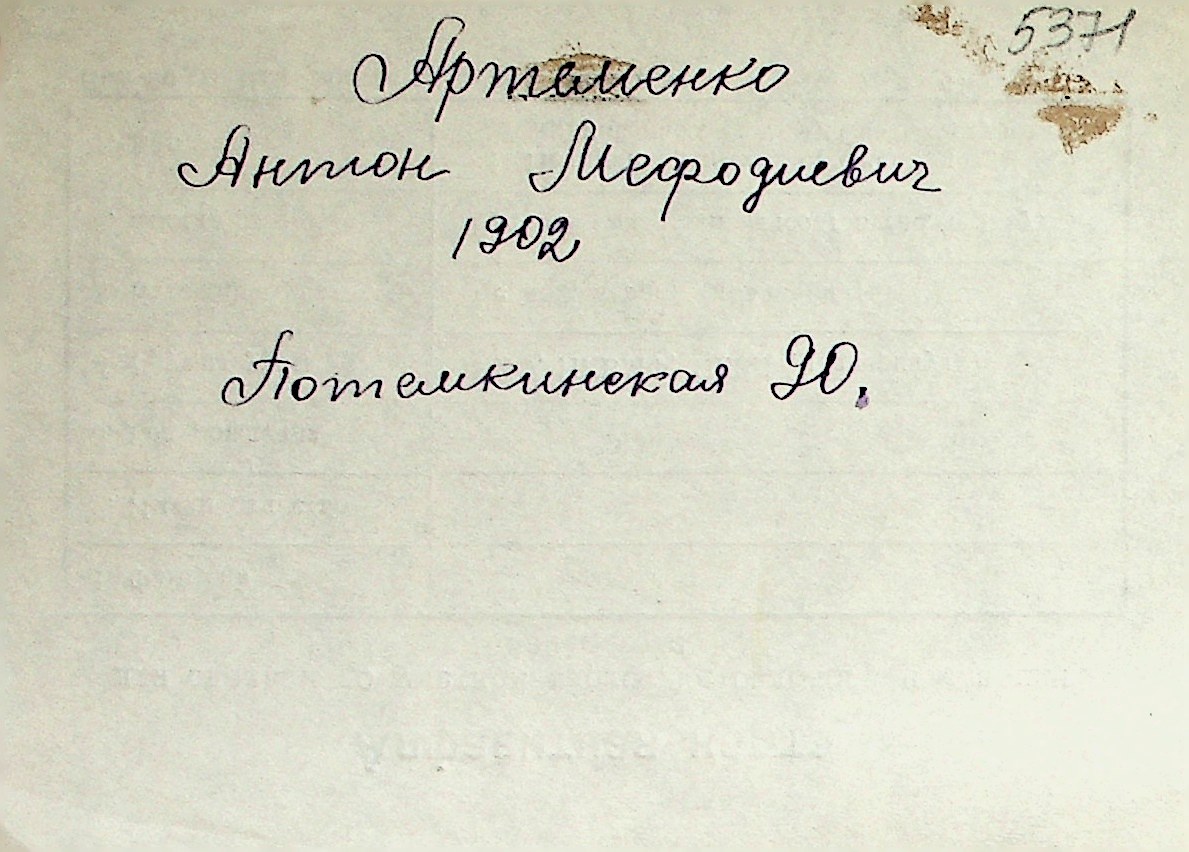 5371
Артеменко
Антон Мефодиевич
1902
Потемкинская 90,